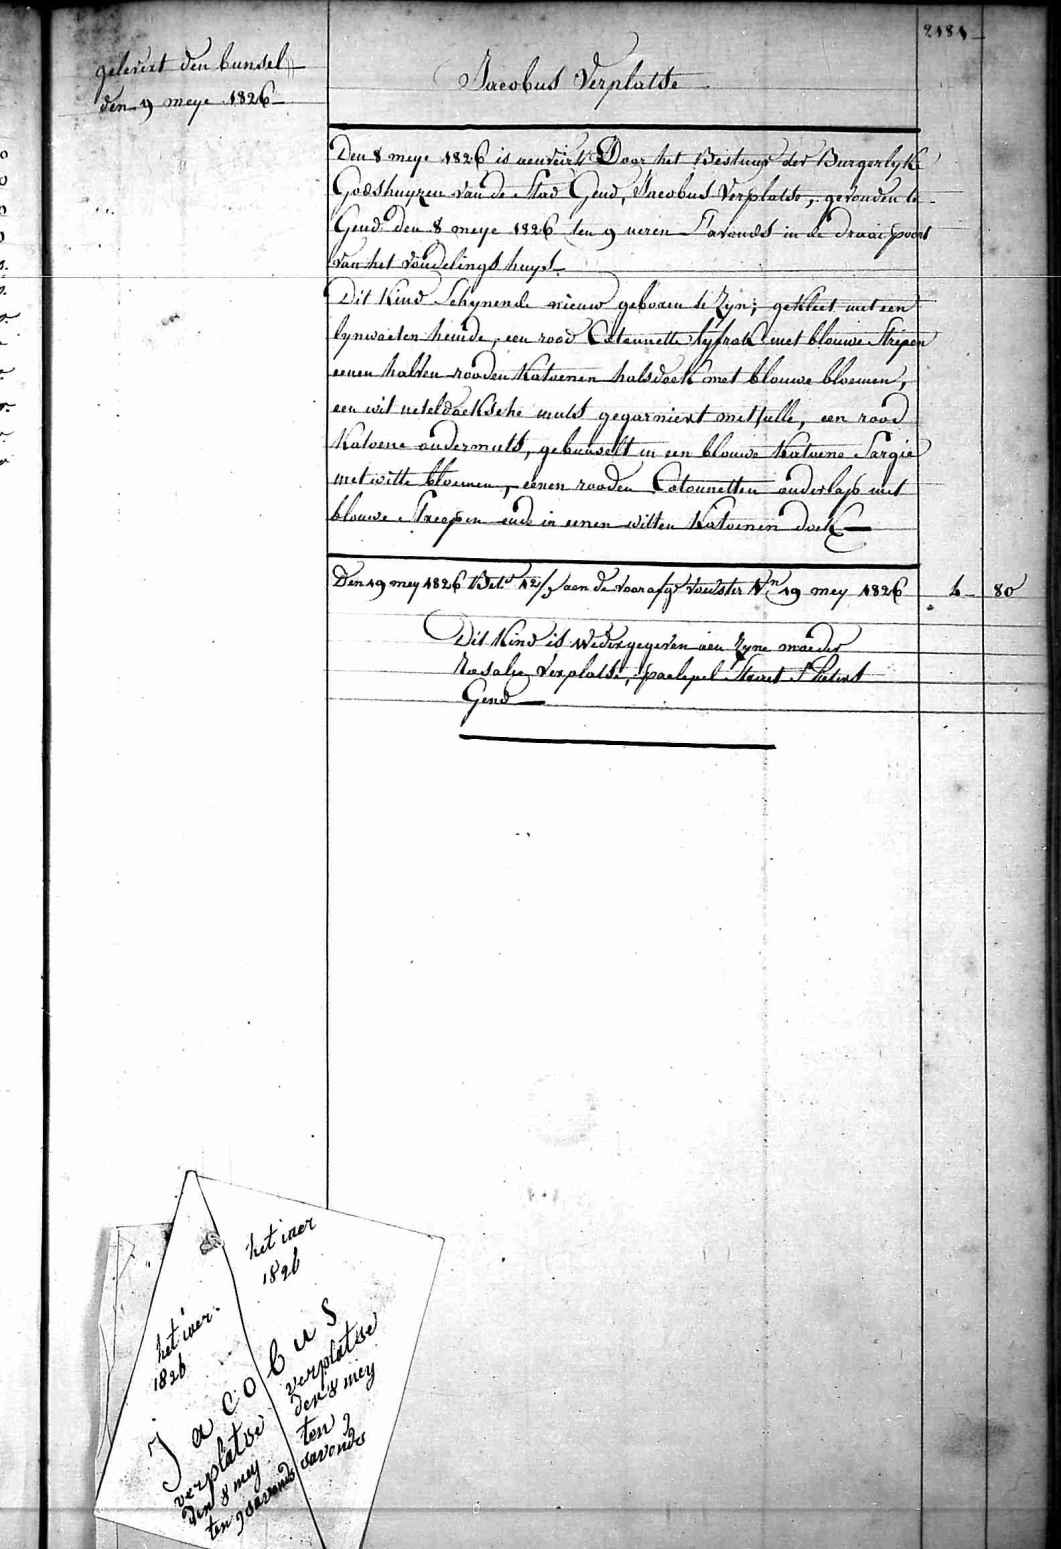 2181
gelevert den bunsel
den 9 meye 1826
Jacobus Verplatse
Den 8 meye 1826 is aenveirt Door het Bestuur der Burgerlyke
Godshuyzen van de Stad Gend, Jacobus Verplatse, gevonden te
Gend den 8 meye 1826 ten 9 ueren S'avonds in de draaipoort
van het vondelings huys
Dit Kind Schynende nieuw geboren te Zyn; gekleet met een
lynwaeten hemde, een rood Catounette lyfrok met blouwe Stripen
eenen halven rooden Katoenen halsdoek met blouwe bloemen,
een wit neteldoeksche muts gegarniert met tulle, een rood
Katoene ondermuts, gebunselt in een blouwe Katoene Sargie
met witte bloemen, eenen rooden Catounetten onderlap met
blouwe Streepen ende in eenen witten Katoenen doek
Den 19 mey 1826 Bet.d 12/ aen de voorafg.e voedster N.n 19 mey 1826 80
Dit Kind is wedergegeven aen Zyne moeder
Rosalie Verplatse, paelepel Straet S.t Pieters
Gend
het iaer
1826
het iaer
1826
Jacobus
verplatse
den 8 mey
ten 9 savonds
verplatse
den 8 mey
ten 9
savonds